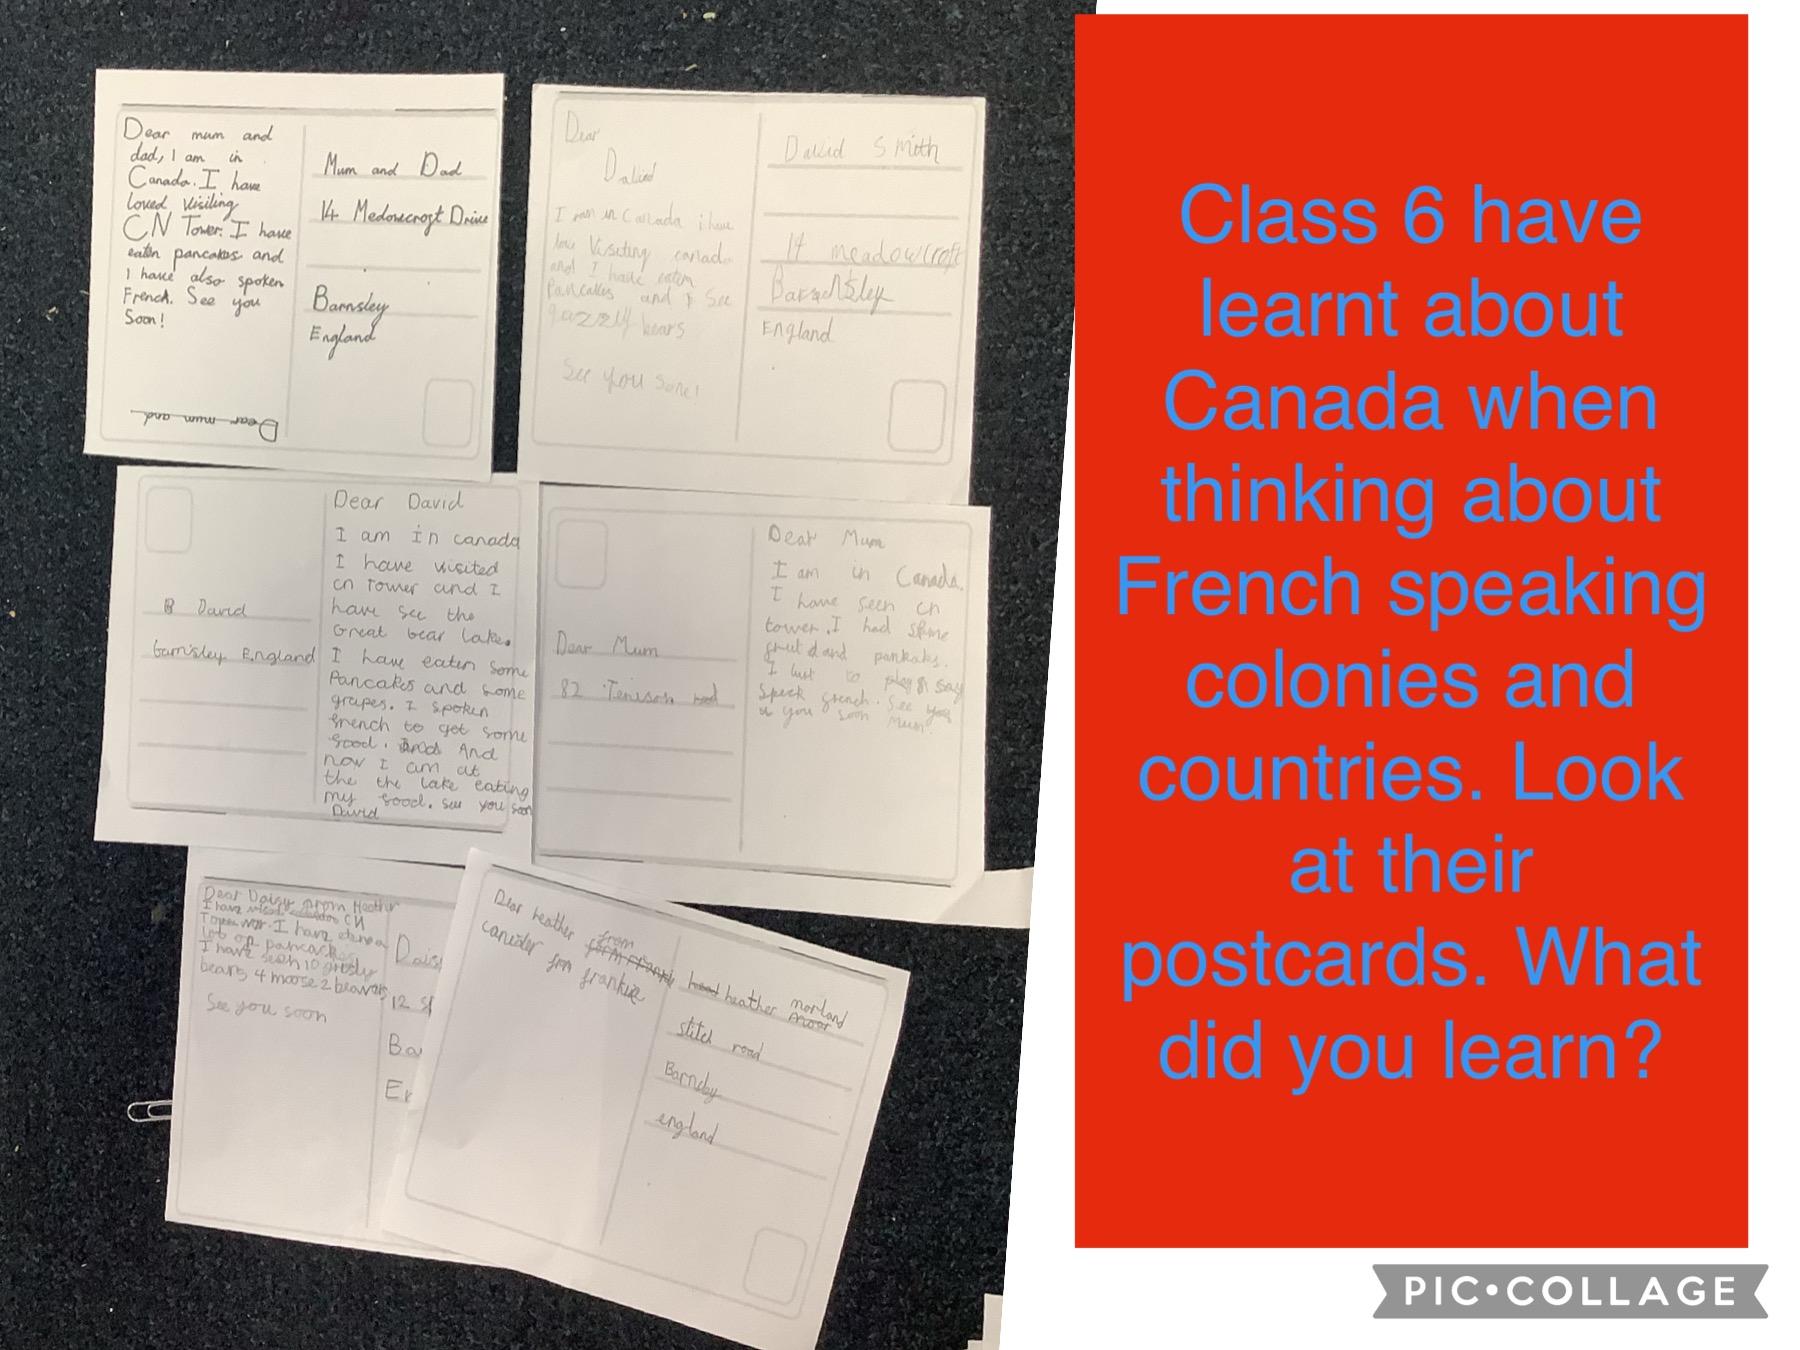 Dear mum and
dad, I am in
Canada. I have
loved visiling
CN Tower. I have
eaten pancakes and
I have also spoken
French. See you
Soon!
Dear mum and
Mum and Dad
14 Medowcroft Drive
Barnsley
England
Dear
David
I am in Canada i have
love Visiting canada
and I have eaten
Pancakes and I See
gazzly bears
See you Sone!
David Smith
14 meadowcroft
Barnsley
England
David
barnsley England
Dear David
I am in canada
I have visited
cn Tower and I
have see the
Great bear lake.
I have eaten some
Pancakes and some
grapes. I spoken
french to get some
food. And
now I am at
the the lake eating
my food. see you soon
David
Dear Mum
82 Tenison
Dear Mum
I am in Canada.
I have seen cn
tower. I had some
and pankaks.
I to play
Speck french. See
you soon Mum
Dear Daisy from Heather
I have CN
Tower. I have
lot of pancackes
I have seen 10
bears 4 moose 2 beavers
See you soon
Dais
12 S
Ba
En
Dear heather from
canider from frankie
heather morland
stitch road
Barnsby
england
Class 6 have
learnt about
Canada when
thinking about
French speaking
colonies and
countries. Look
at their
postcards. What
did you learn?
PIC•COLLAGE